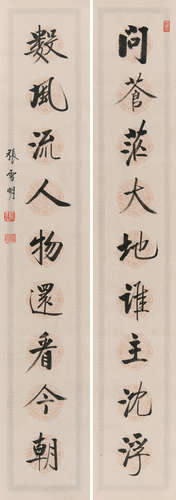 问苍茫大地谁主沈浮
數風流人物還看今朝
張雪明